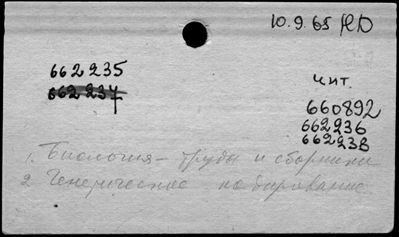 10.9.65 ЯD
662235
662237
чит.
660892
662236
662238
1. Биология - труды и сборники
2 Генетическое кодирование